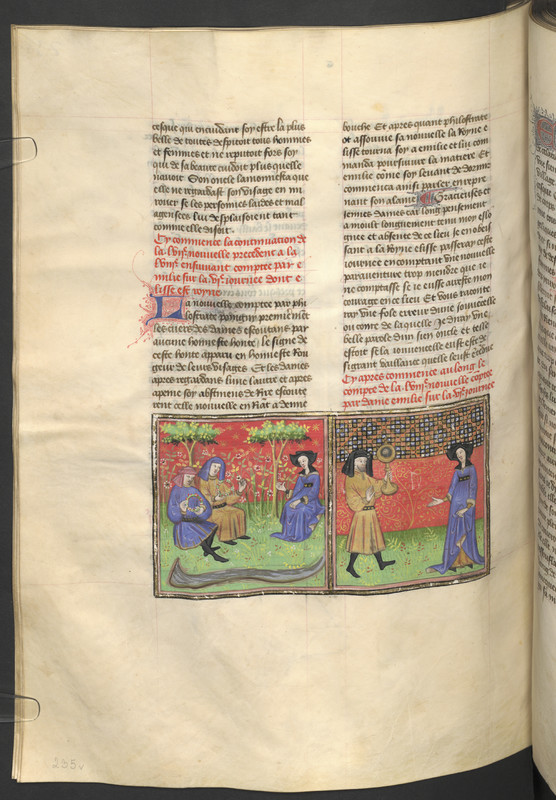 cesque qui encuidant soy estre la plus
belle de toutes despitoit tous hommes
et femmes et ne reputoit fors soy
qui de sa beaute cuidoit plus quelle
nauoit Son oncle lamonnesta que
elle ne regardast son visage en mi
rouer se les personnes laides et mal
agensees lui desplaisoient tant
comme elle disoit
Cy commence la continuation de
la nouuelle precedent a la
ensuiuant comptee par e
milie sur la journee dont e
lisse est royne
La nouuelle comptee par phi
lostrate poingny premierement
les cuers des dames escoutans par
aucune honneste honte le signe de
ceste honte apparu en honneste rou
geur de leurs visages Et les dames
apres regardans lune lautre et apres
a peine soy abstenans de rire escoute
rent celle nouuelle en
bouche Et apres quant philostrate
ot assouuie sa nouuelle la Royne e
lisse tourna soy a emilie et lui com
manda poursuiure la matiere Et
emilie come soy leuant de dormir
commenca ainsi parler en repre
nant son alaine Gracieuses et
jeunes dames car long pensement
a moult longuement tenu moy eslo
gnee et absente de ce lieu je en obeis
sant a la Royne elisse passeray ceste
journee en comptant une nouuelle
parauenture trop mendre que je
ne comptasse se je eusse au este mon
courage en ce lieu Et vous racompte
ray une fole erreur dune jouuencelle
ou conte de laquelle Je diray une
belle parole dun sien oncle et telle
estoit se la jouuencelle eust este de
si grant vaillance quelle leust
Cy apres commence au long le
compte de la nouuelle comptee
par dame emilie sur la journee
235v